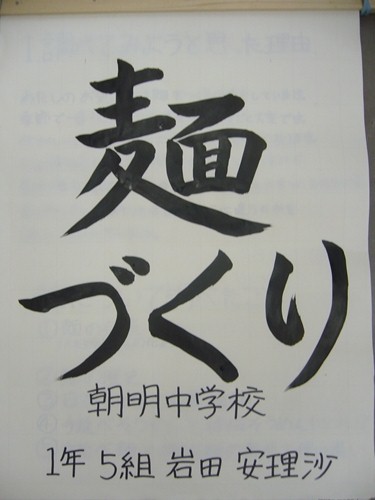 麺
づくり
朝明中学校
1年 5組 岩田 安理沙